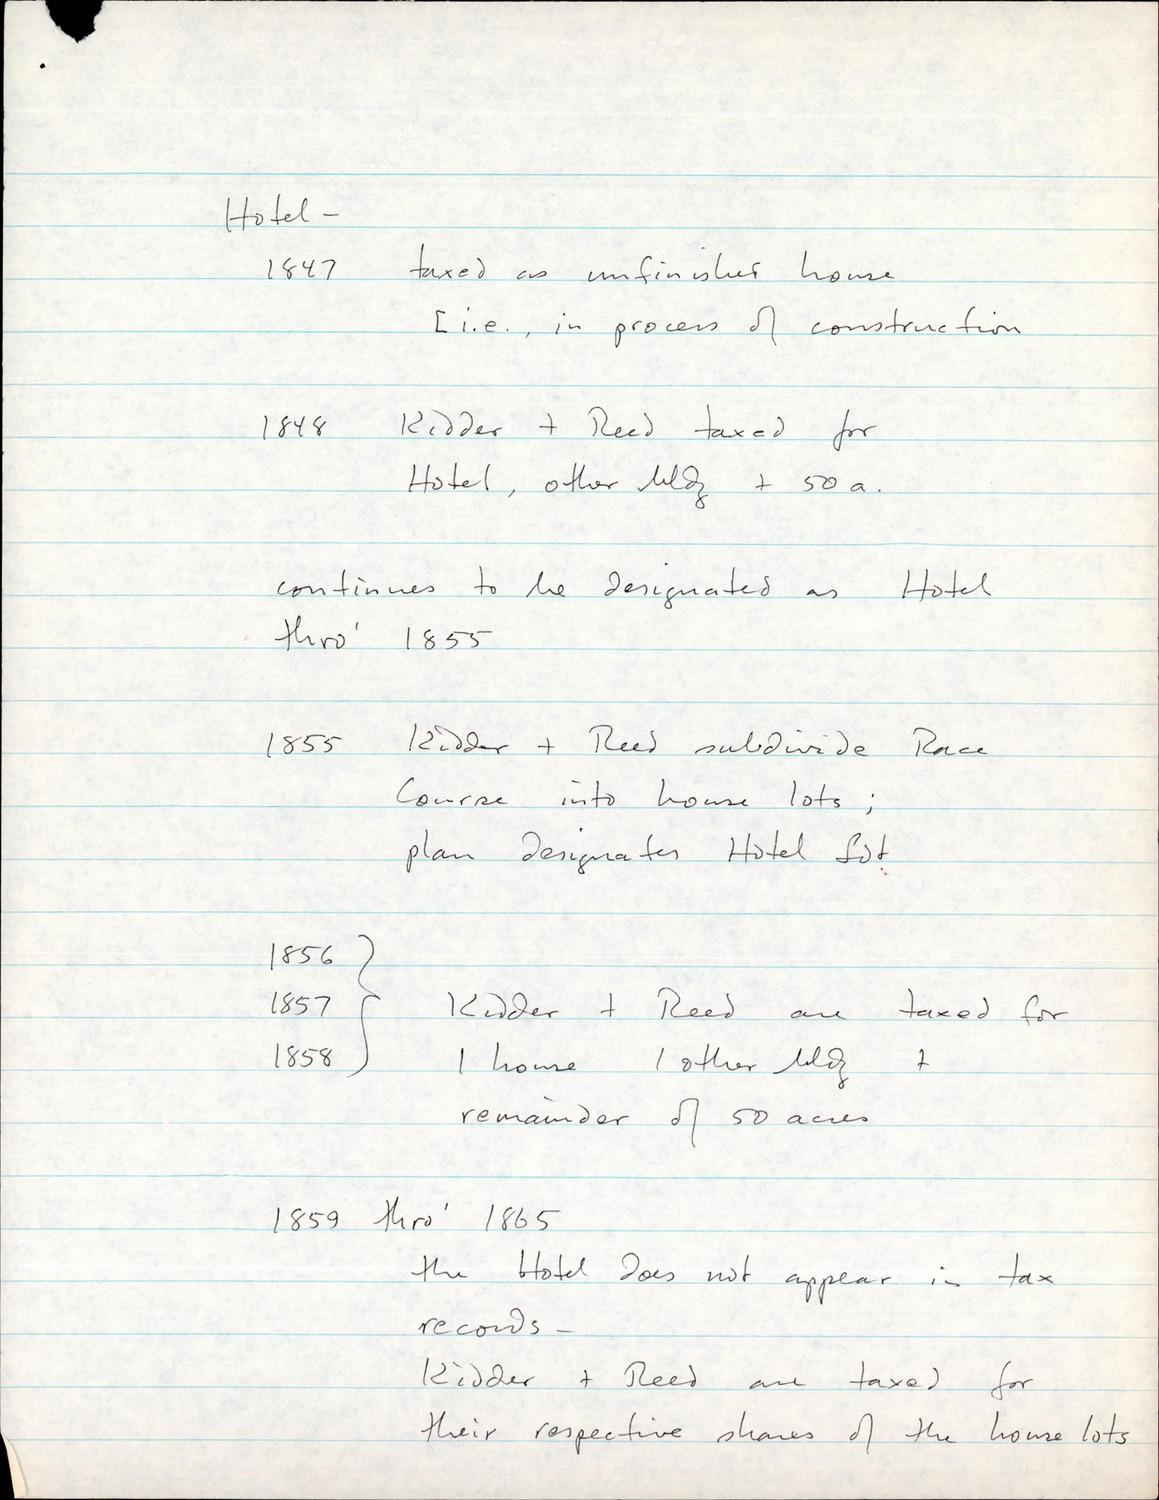 Hotel -
1847 taxed as unfinished house
[i.e., in process of construction
1848 Kidder + Reed taxed for
Hotel, other bldg + 50 a.
continues to be designated as Hotel
thro' 1855
1855 Kidder + Reed subdivide Race
Course into house lots;
plan designates Hotel Lot
1856
1857 Kidder + Reed are taxed for
1858 1 house 1 other bldg +
remainder of 50 acres
1859 thro' 1865
the Hotel does not appear in tax
records -
Kidder + Reed are taxed for
their respective shares of the house lots